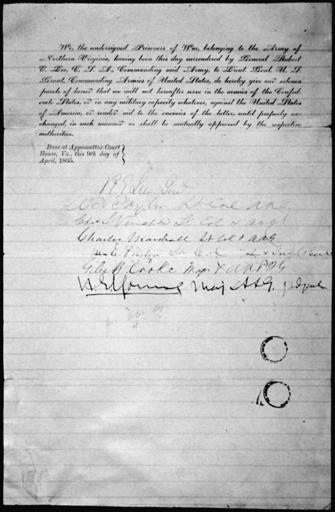 We, the undersigned Prisoners of War, belonging to the Army of
Northern Virginia, having been this day surrendered by General Robert
E. Lee, C. S. A., Commanding said Army, to Lieut. Genl. U. S.
Grant, Commanding Armies of United States, do hereby give our solemn
parole of honor that we will not hereafter serve in the armies of the Confed-
erate States, or in any military capacity whatever, against the United States
of America, or render aid to the enemies of the latter, until properly ex-
changed, in such manner as shall be mutually approved by the respective
authorities.
Done at Appomattox Court
House, Va., this 9th day of
April, 1865.
R E Lee Genl
W. H. Taylor Lt Col AAG
Chs Venable Lt Col & AAG
Charles Marshall Lt Col & AAG
Lt Col &
Giles B Cooke Maj & AAIG
H E Young Maj AAG